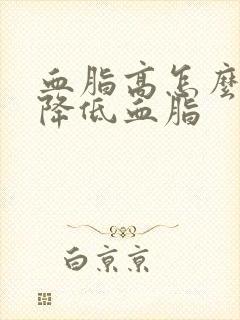 血脂高怎麼
降低血脂
白京京